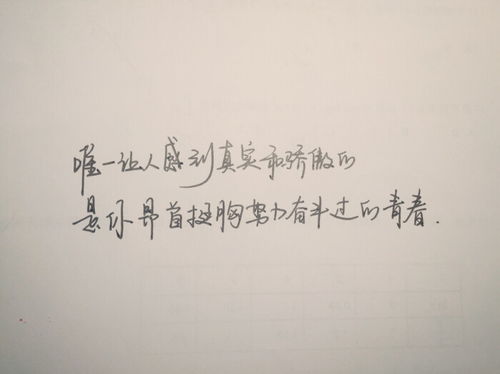 唯一让人感到真实和骄傲的
是你昂首挺胸努力奋斗过的青春.